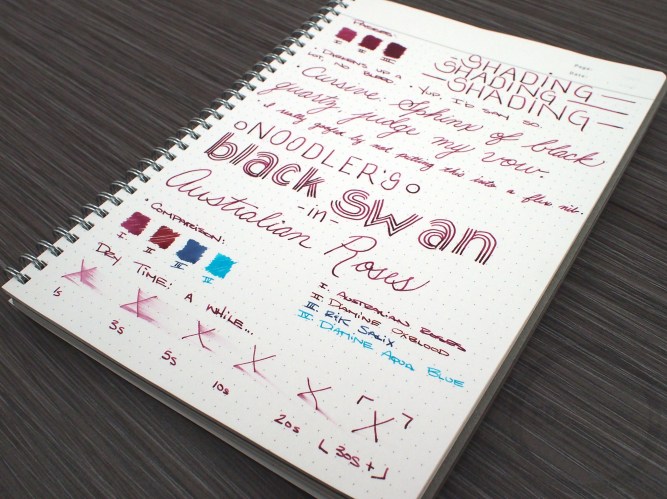 Page:
Date:
PASSES:
I II III
SHADING
SHADING
SHADING
• DARKENS UP A
LOT, NO BLEED
• YUP, I'D SAY SO.
• Cursive: Sphinx of black
quartz, judge my vow.
• I really goofed by not putting this into a flex nib.
NOODLER'S
black swan
-in-
Australian Roses
• COMPARISON:
I II III IV
I. AUSTRALIAN ROSES
II. DIAMINE OXBLOOD
III. RIK SALIX
IV. DIAMINE AQUA BLUE
DRY TIME: A WHILE...
1s 3s 5s 10s 20s 30s+